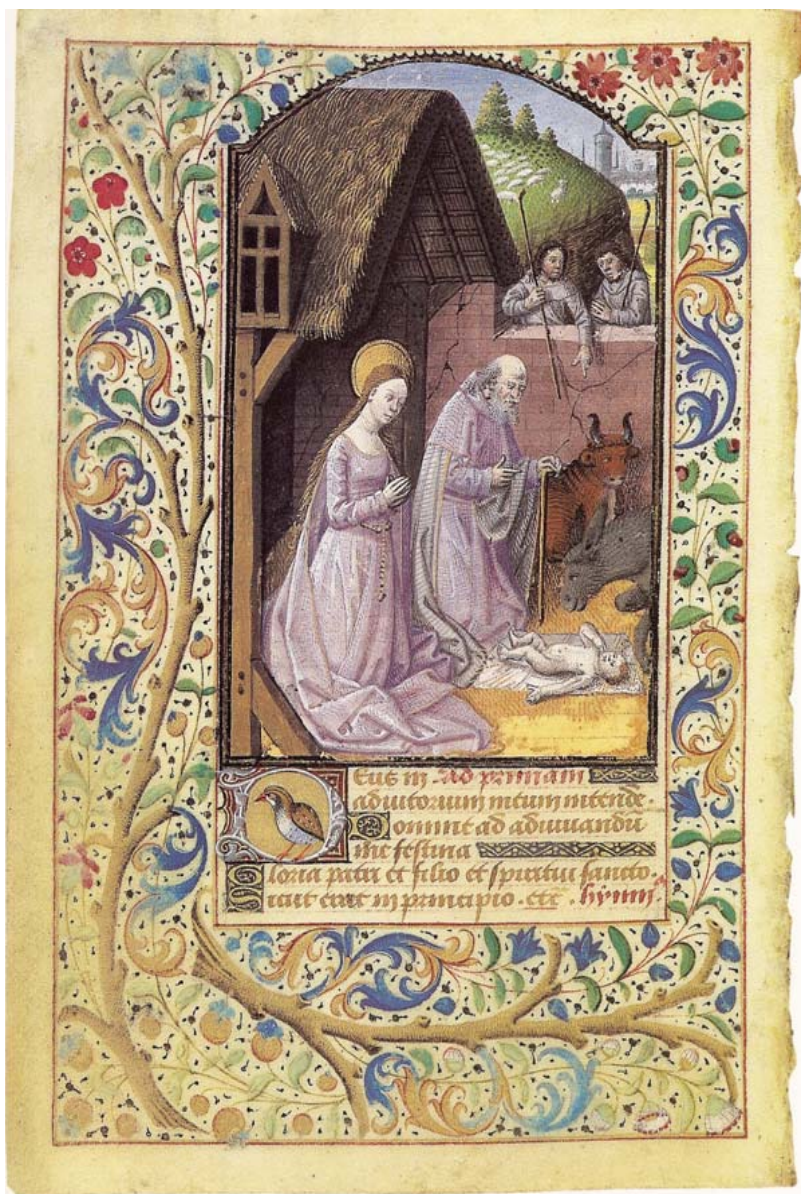 Deus in Ad primam
adiutorium meum intende.
Domine ad adiuuandū
me festina
Gloria patri et filio et spiritui sancto.
Sicut erat in principio. etc. hymn⁹